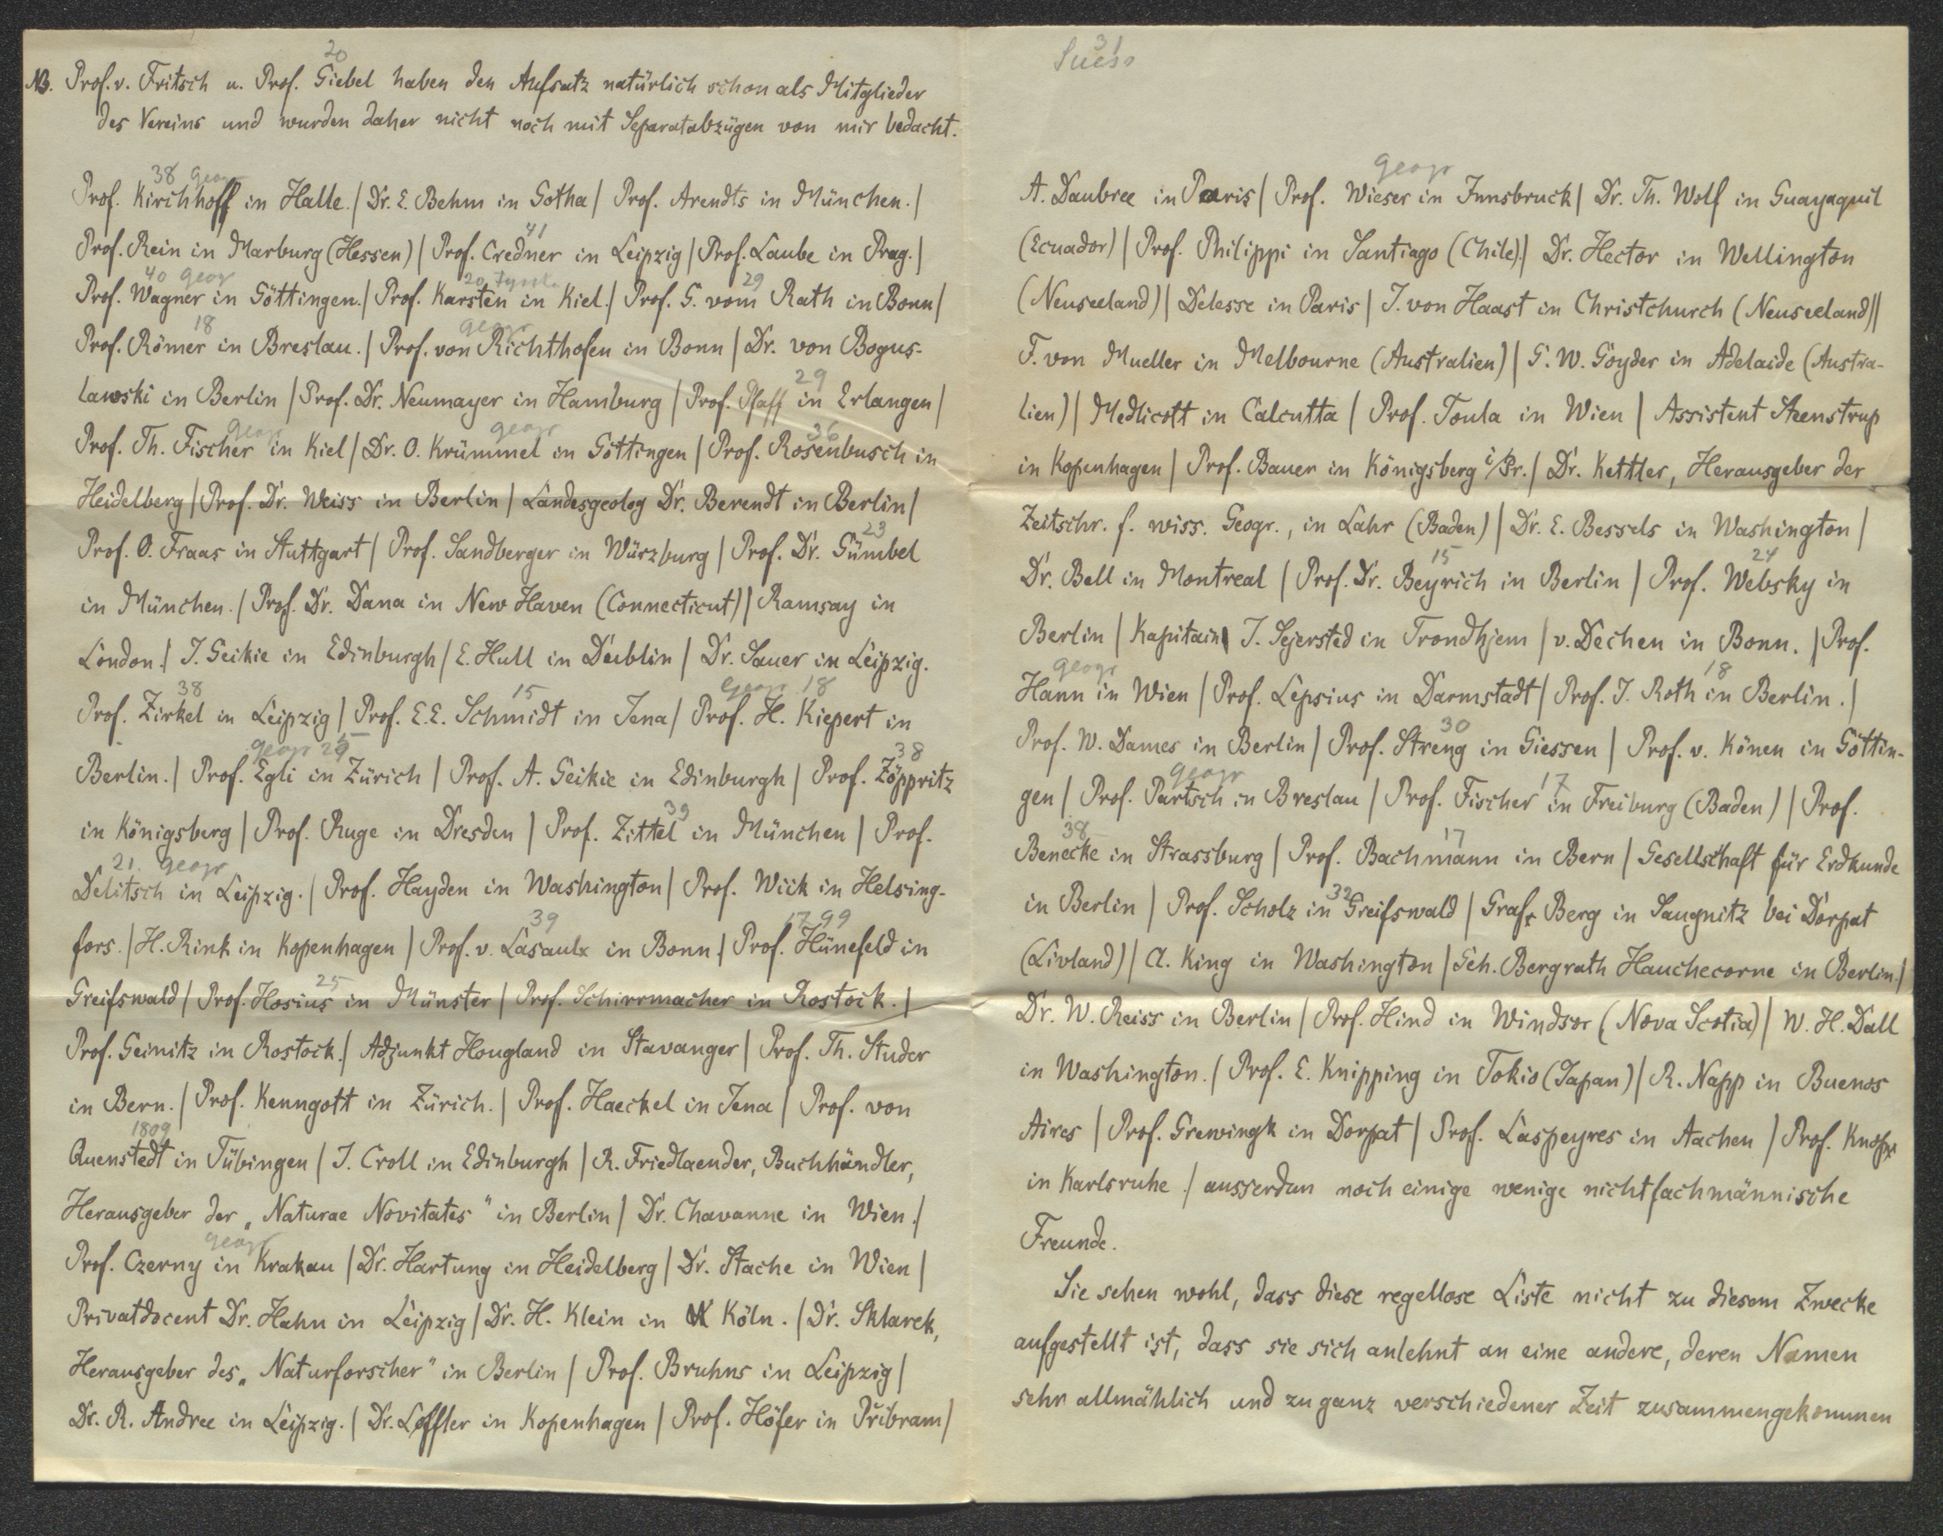 20
NB. Prof. v. Fritsch u. Prof. Giebel haben den Aufsatz natürlich schon als Mitglieder
des Vereins und wurden daher nicht noch mit Separatabzügen von mir bedacht.
38 geogr
Prof. Kirchhoff in Halle. | Dr. E. Behm in Gotha | Prof. Arendts in München. |
41
Prof. Rein in Marburg (Hessen) | Prof. Credner in Leipzig | Prof. Laube in Prag. |
40 geogr 20 29
Prof. Wagner in Göttingen. | Prof. Karsten in Kiel. | Prof. G. vom Rath in Bonn |
18 geogr
Prof. Römer in Breslau. | Prof. von Richthofen in Bonn | Dr. von Bogus-
29
lawski in Berlin | Prof. Dr. Neumayer in Hamburg | Prof. Pfaff in Erlangen |
geogr geogr 36
Prof. Th. Fischer in Kiel | Dr. O. Krümmel in Göttingen | Prof. Rosenbusch in
Heidelberg | Prof. Dr. Weiss in Berlin | Landesgeolog Dr. Berendt in Berlin |
23
Prof. O. Fraas in Stuttgart | Prof. Sandberger in Würzburg | Prof. Dr. Gümbel
in München. | Prof. Dr. Dana in New Haven (Connecticut) | Ramsay in
London. | J. Geikie in Edinburgh | E. Hull in Dublin | Dr. Sauer in Leipzig.
38 15 geogr 18
Prof. Zirkel in Leipzig | Prof. E. E. Schmidt in Jena | Prof. H. Kiepert in
geogr 25 38
Berlin. | Prof. Egli in Zürich | Prof. A. Geikie in Edinburgh | Prof. Zöppritz
39
in Königsberg | Prof. Ruge in Dresden | Prof. Zittel in München | Prof.
21. geogr
Delitsch in Leipzig. | Prof. Hayden in Washington | Prof. Wiik in Helsing-
39 1799
fors. | H. Rink in Kopenhagen | Prof. v. Lasaulx in Bonn | Prof. Hünefeld in
25
Greifswald | Prof. Hosius in Münster | Prof. Schirrmacher in Rostock. |
Prof. Geinitz in Rostock. | Adjunkt Hougland in Stavanger | Prof. Th. Studer
in Bern. | Prof. Kenngott in Zürich. | Prof. Haeckel in Jena | Prof. von
1809
Quenstedt in Tübingen | J. Croll in Edinburgh | R. Friedlaender, Buchhändler,
Herausgeber der „Naturae Novitates" in Berlin | Dr. Chavanne in Wien. |
geogr
Prof. Czerny in Krakau | Dr. Hartung in Heidelberg | Dr. Stache in Wien |
Privatdocent Dr. Hahn in Leipzig | Dr. H. Klein in Köln. | Dr. Sklarek,
Herausgeber des „Naturforscher" in Berlin | Prof. Bruhns in Leipzig |
Dr. R. Andree in Leipzig. | Dr. Löffler in Kopenhagen | Prof. Höfer in Přibram |
31
Suess
geogr
A. Daubree in Paris | Prof. Wieser in Innsbruck | Dr. Th. Wolf in Guayaquil
(Ecuador) | Prof. Philippi in Santiago (Chile). | Dr. Hector in Wellington
(Neuseeland) | Delesse in Paris | J. von Haast in Christchurch (Neuseeland) |
F. von Mueller in Melbourne (Australien) | G. W. Goyder in Adelaide (Austra-
lien) | Medlicott in Calcutta | Prof. Toula in Wien | Assistent Steenstrup
in Kopenhagen | Prof. Bauer in Königsberg i/Pr. | Dr. Kettler, Herausgeber der
Zeitschr. f. wiss. Geogr., in Lahr (Baden) | Dr. E. Bessels in Washington |
15 24
Dr. Bell in Montreal | Prof. Dr. Beyrich in Berlin | Prof. Websky in
Berlin | Kapitain J. Sejersted in Trondhjem | v. Dechen in Bonn. | Prof.
geogr 18
Hann in Wien | Prof. Lepsius in Darmstadt | Prof. J. Roth in Berlin. |
30
Prof. W. Dames in Berlin | Prof. Streng in Giessen | Prof. v. Könen in Göttin-
geogr 17
gen | Prof. Partsch in Breslau | Prof. Fischer in Freiburg (Baden) | Prof.
38 17
Benecke in Strassburg | Prof. Bachmann in Bern | Gesellschaft für Erdkunde
32
in Berlin | Prof. Scholz in Greifswald | Graf Berg in Saugnitz bei Dorpat
(Livland) | Cl. King in Washington | Geh. Bergrath Hauchecorne in Berlin |
Dr. W. Reiss in Berlin | Prof. Hind in Windsor (Nova Scotia) | W. H. Dall
in Washington. | Prof. E. Knipping in Tokio (Japan) | R. Napp in Buenos
Aires | Prof. Grewingk in Dorpat | Prof. Laspeyres in Aachen | Prof. Knop
in Karlsruhe. | ausserdem noch einige wenige nichtfachmännische
Freunde.
Sie sehen wohl, dass diese regellose Liste nicht zu diesem Zwecke
aufgestellt ist, dass sie sich anlehnt an eine andere, deren Namen
sehr allmählich und zu ganz verschiedener Zeit zusammengekommen